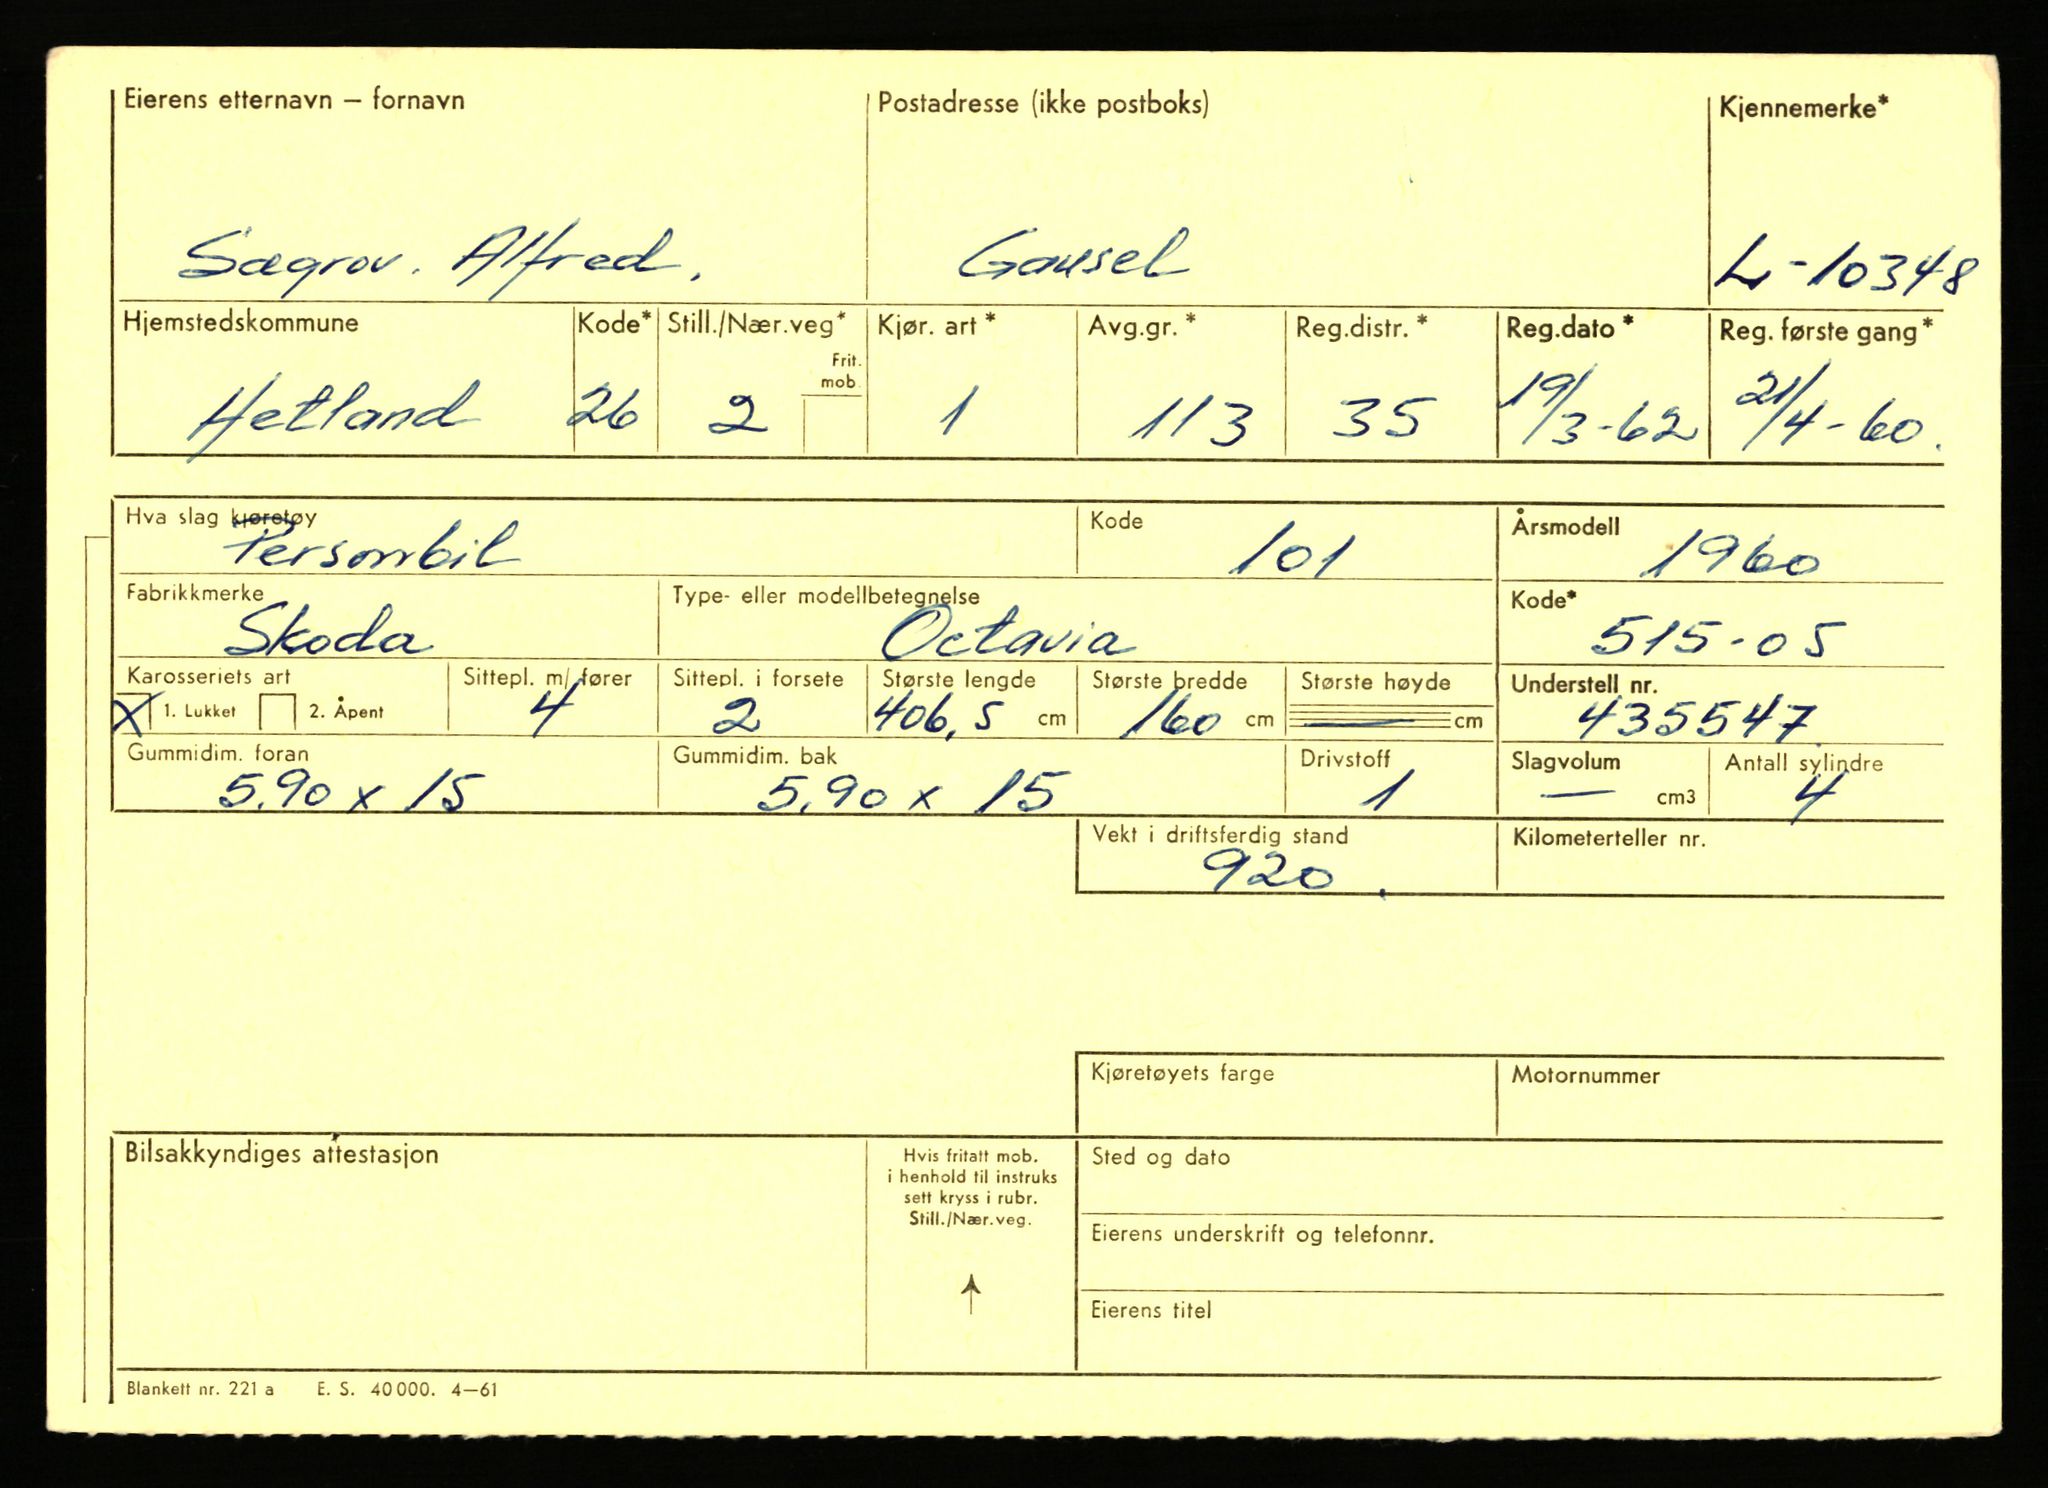 Eierens etternavn – fornavn
Postadresse (ikke postboks)
Kjennemerke*
Sægrov. Alfred.
Gausel
L-10348
Hjemstedskommune Kode* Still./Nær.veg* Kjør. art * Avg.gr. * Reg.distr. * Reg.dato * Reg. første gang*
Frit. mob.
Hetland 26 2 1 113 35 19/3-62 21/4-60.
Hva slag kjøretøy Kode Årsmodell
Personbil 101 1960
Fabrikkmerke Type- eller modellbetegnelse Kode*
Skoda Octavia 515-05
Karosseriets art Sittepl. m/ fører Sittepl. i forsete Største lengde Største bredde Største høyde Understell nr.
X 1. Lukket 2. Åpent 4 2 406,5 cm 160 cm — cm 435547
Gummidim. foran Gummidim. bak Drivstoff Slagvolum Antall sylindre
5.90 x 15 5.90 x 15 1 — cm3 4
Vekt i driftsferdig stand Kilometerteller nr.
920.
Kjøretøyets farge Motornummer
Bilsakkyndiges attestasjon
Hvis fritatt mob.
i henhold til instruks
sett kryss i rubr.
Still./Nær.veg.
Sted og dato
Eierens underskrift og telefonnr.
Eierens titel
Blankett nr. 221 a E. S. 40 000. 4—61